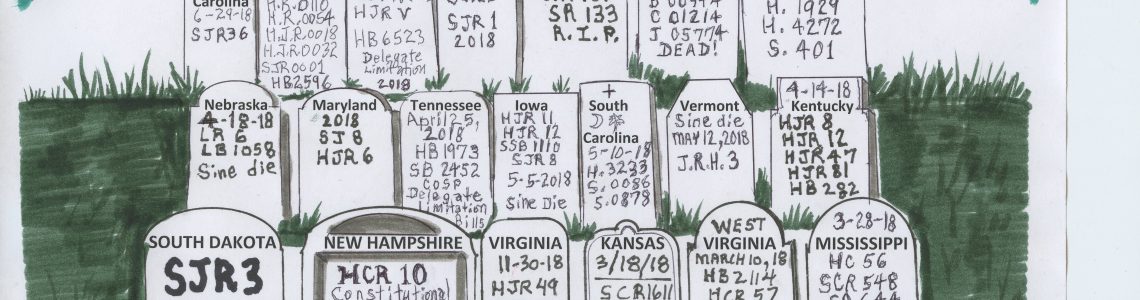 Carolina
6-29-18
SJR36
H.R.0054
H.J.R.0018
H.J.R.0032
SJR0001
HB2596
HJR V
HB6523
Delegate
Limitation
2018
SJR1
2018
SR 133
R.I.P.
C 01214
J 05774
DEAD!
H. 1929
H. 4272
S. 401
Nebraska
4-18-18
LR 6
LB 1058
Sine die
Maryland
2018
SJ 8
HJR 6
Tennessee
April 25,
2018
HB 1973
SB 2452
COSP
Delegate
Limitation
Bills
Iowa
HJR 11
HJR 12
SSB 1110
SJR 8
5-5-2018
Sine Die
South
Carolina
5-10-18
H. 3233
S. 0086
S. 0878
Vermont
Sine die
MAY 12, 2018
J.R.H. 3
4-14-18
Kentucky
HJR 8
HJR 12
HJR 47
HJR 81
HB 282
SOUTH DAKOTA
SJR3
NEW HAMPSHIRE
HCR 10
Constitutional
VIRGINIA
11-30-18
HJR 49
KANSAS
3/18/18
SCR1611
WEST
VIRGINIA
MARCH 10, 18
HB 2114
HCR 57
3-28-18
MISSISSIPPI
HC 56
SCR 548